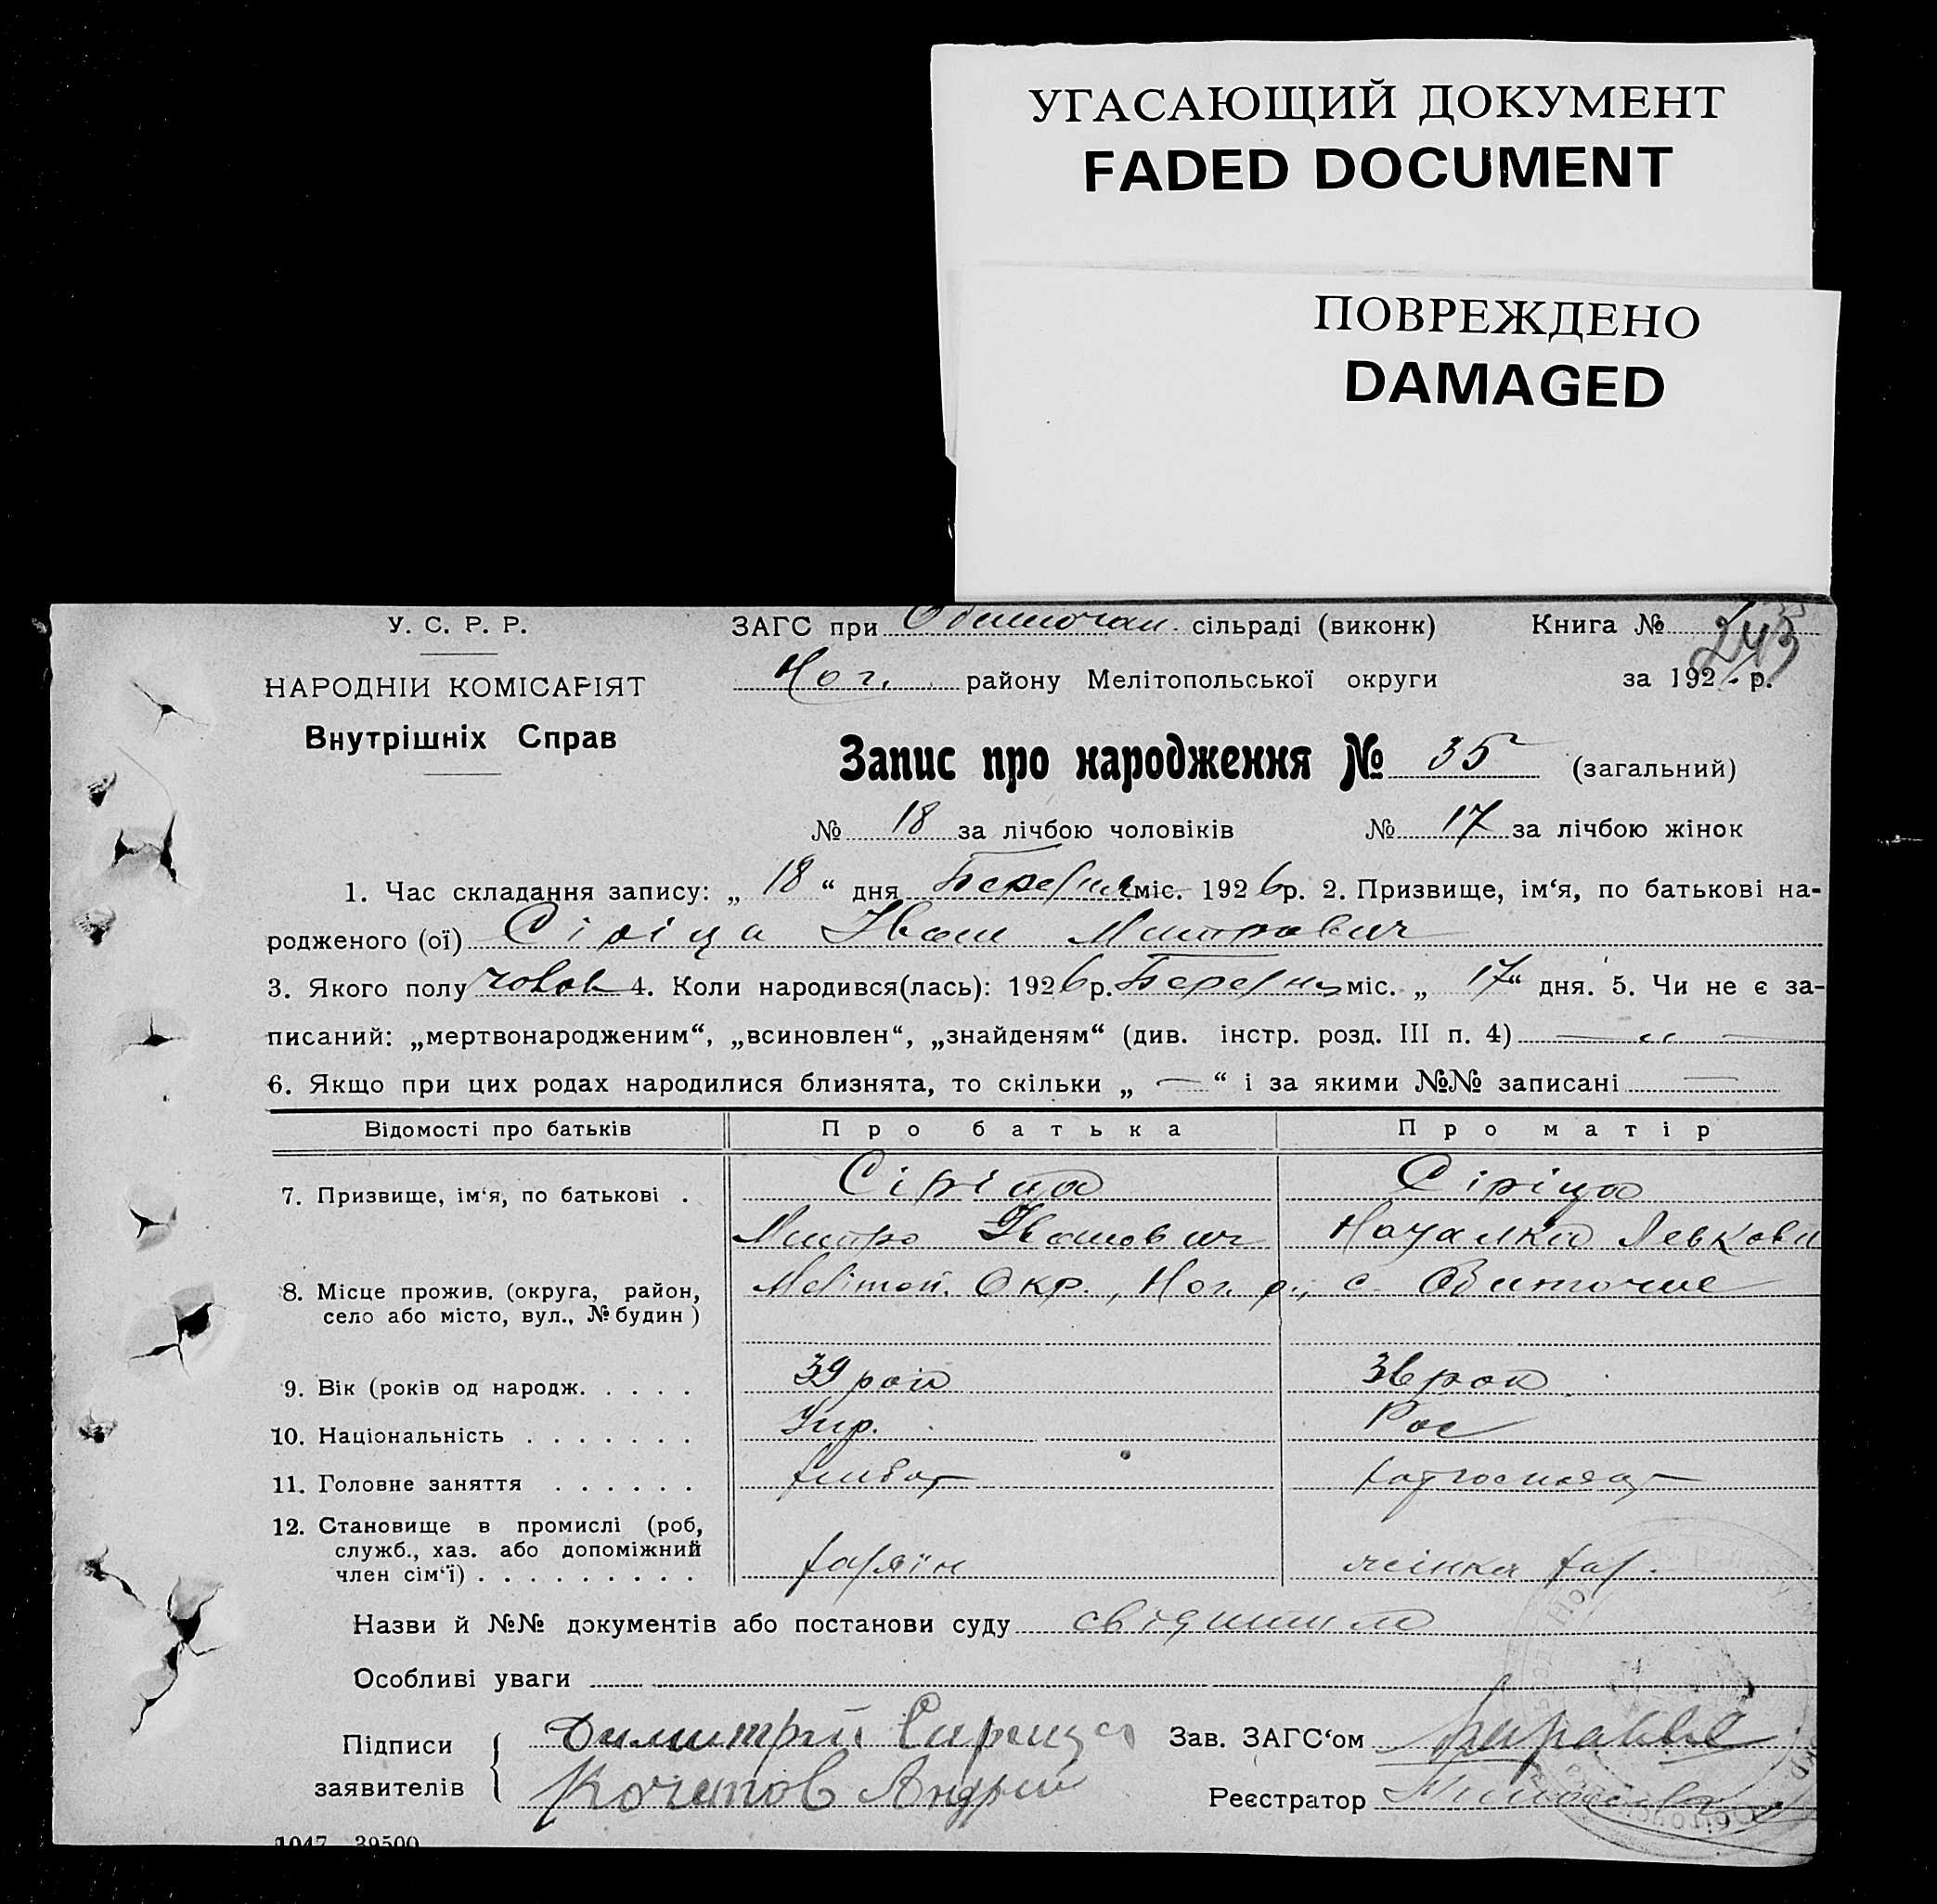 УГАСАЮЩИЙ ДОКУМЕНТ
FADED DOCUMENT
ПОВРЕЖДЕНО
DAMAGED
У. С. Р. Р. ЗАГС при сільраді (виконк) Книга № 243
НАРОДНІЙ КОМІСАРІЯТ Ног. району Мелітопольської округи за 192 р.
Внутрішніх Справ
Запис про народження № 35 (загальний)
№ 18 за лічбою чоловіків № 17 за лічбою жінок
1. Час складання запису: „ 18 “ дня Березня міс. 1926 р. 2. Призвище, ім‘я, по батькові на-
родженого (ої) Сіріца Іван Митрович
3. Якого полу чолов 4. Коли народився(лась): 1926 р. Березня міс. „ 17 “ дня. 5. Чи не є за-
писаний: „мертвонародженим“, „всиновлен“, „знайденям“ (див. інстр. розд. III п. 4) — „ —
6. Якщо при цих родах народилися близнята, то скільки „ — “ і за якими №№ записані —
Відомості про батьків Про батька Про матір
7. Призвище, ім‘я, по батькові . Сіріца Сіріца
Митро Іванович Наталка Левкови
8. Місце прожив. (округа, район, Меліт. Окр., Ног. р., с. Обиточне
село або місто, вул., № будин )
9. Вік (років од народж. . . . . 39 рок 36 рок
10. Національність . . . . . . . Укр. Рос
11. Головне заняття . . . . . .
12. Становище в промислі (роб,
служб., хаз. або допоміжний
член сім‘ї) . . . . . . . . . хазяїн жінка хаз.
Назви й №№ документів або постанови суду
Особливі уваги
Підписи Димитрий Сирица Зав. ЗАГС‘ом
заявителів Кочетов Андрій Реєстратор
1047 39500